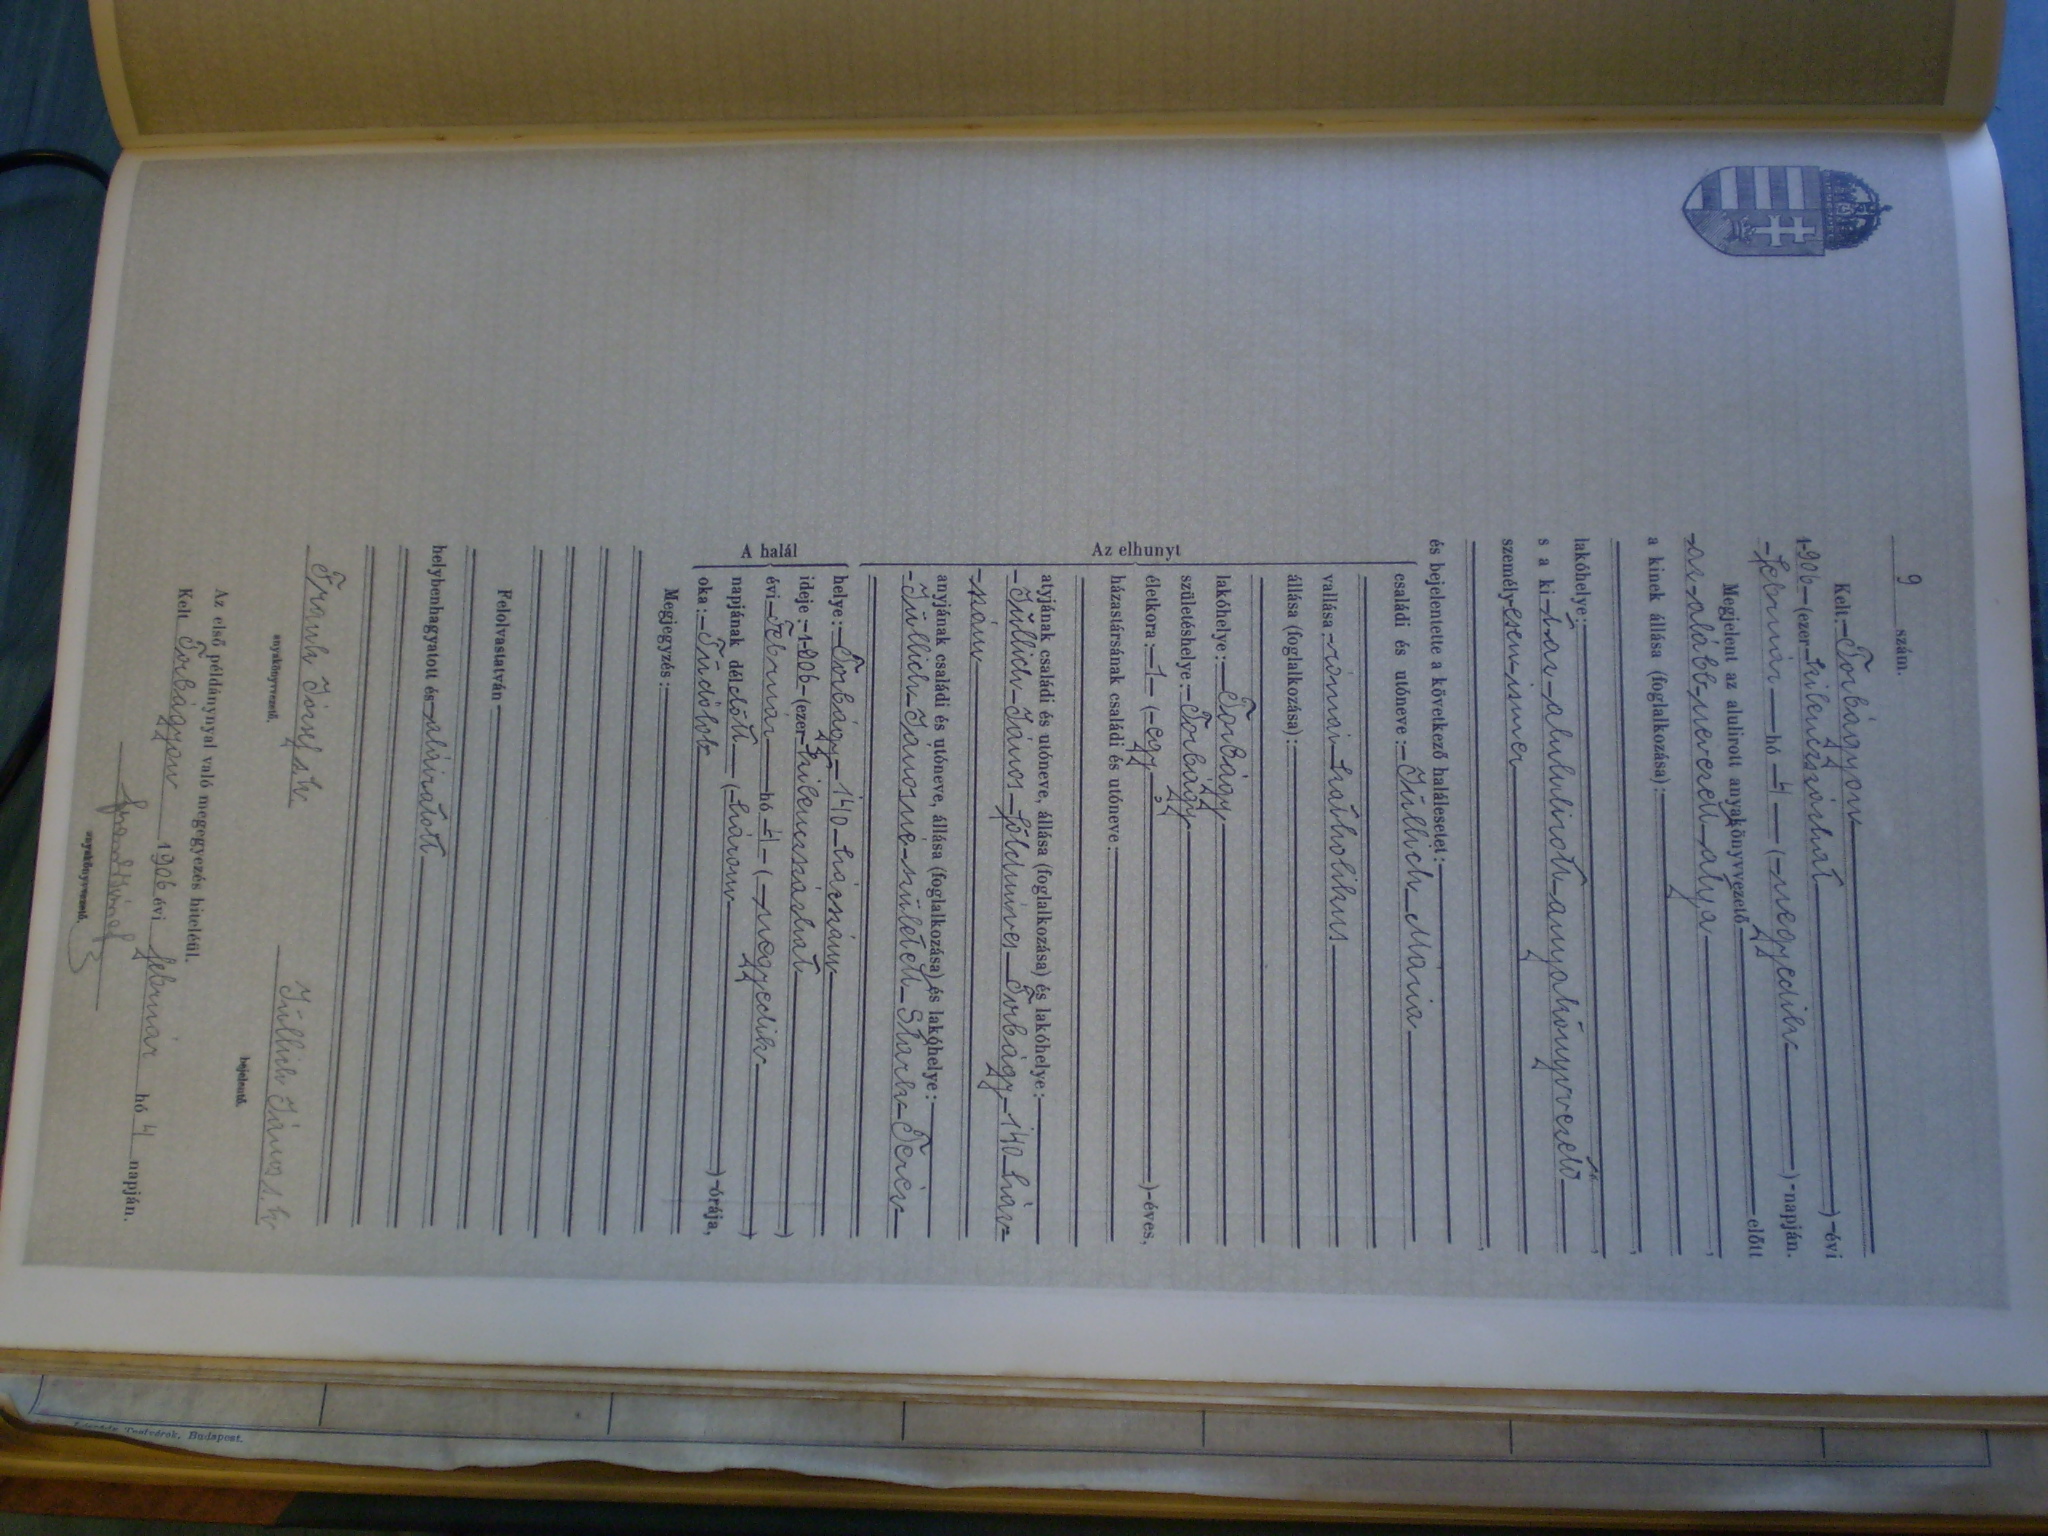 9 szám.
Kelt: Torbágyon
1906 (ezer kilenczszázhat )-évi
február hó 4 ( negyedik )-napján.
Megjelent az alulirott anyakönyvvezető előtt
az alább nevezett atya ,
a kinek állása (foglalkozása):
,
lakóhelye: ,
s a ki-t az alulirott anyakönyvvezető
személyesen ismer ,
és bejelentette a következő halálesetet:
Az elhunyt
családi és utóneve: Jüllich Mária
vallása: római katholikus
állása (foglalkozása):
lakóhelye: Torbágy
születéshelye: Torbágy
életkora: 1 ( egy )-éves,
házastársának családi és utóneve:
atyjának családi és utóneve, állása (foglalkozása) és lakóhelye:
Jüllich János földmíves Torbágy 140 ház-
szám
anyjának családi és utóneve, állása (foglalkozása) és lakóhelye:
Jüllich Jánosné született Stark Teréz
A halál
helye: Torbágy 140 házszám
ideje: 1906 (ezer kilenczszázhat )
évi február hó 4 ( negyedik )
napjának délelőtt ( három )-órája,
oka: Tüdőlob
Megjegyzés:
Felolvastatván
helybenhagyatott és aláíratott
Frank József s.k. Jüllich János s.k.
anyakönyvvezető. bejelentő.
Az első példánynyal való megegyezés hiteléül.
Kelt Torbágyon 1906 évi február hó 4 napján.
Frank József
anyakönyvvezető.
Tnatvárok, Budapest.